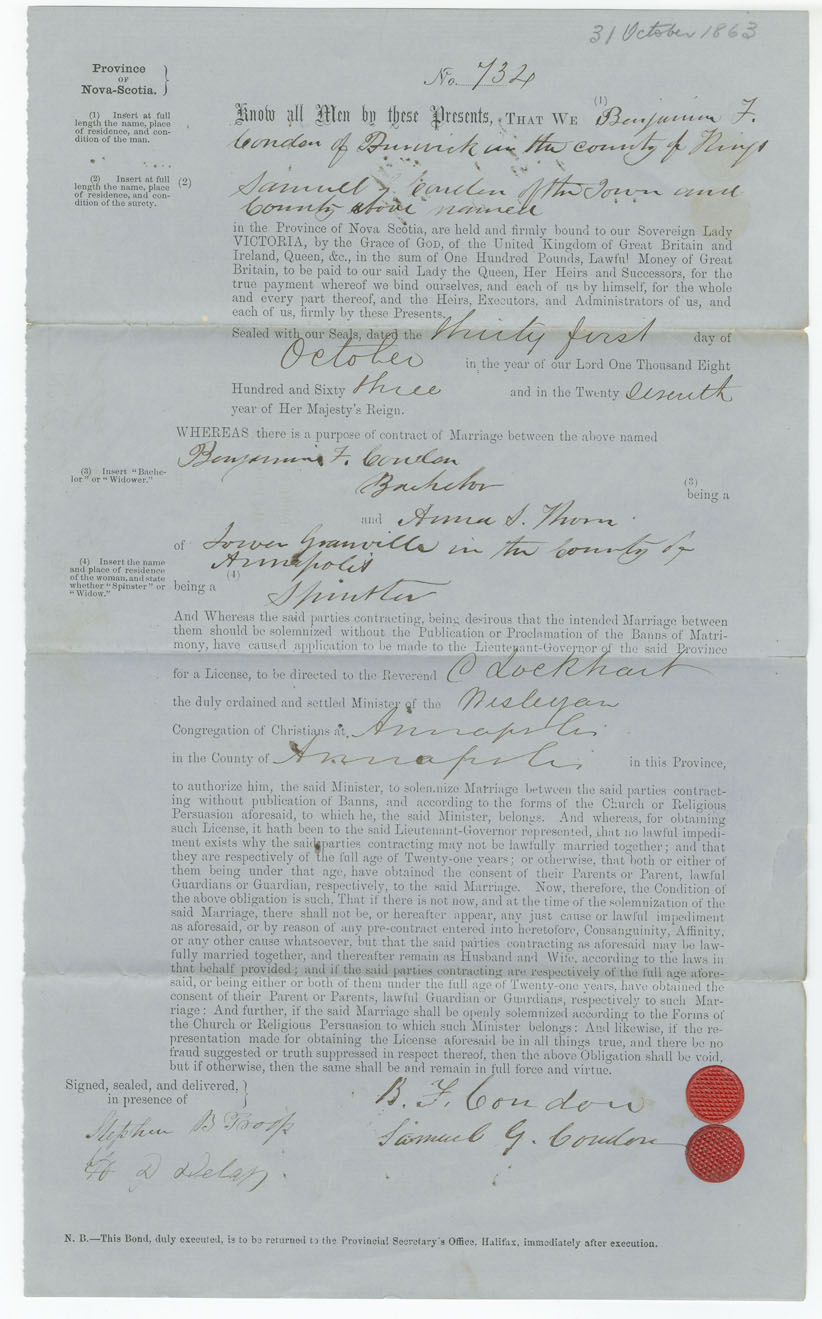 31 October 1863
Province
OF
Nova-Scotia.
No. 732
(1) Insert at full
length the name, place
of residence, and con-
dition of the man.
Know all Men by these Presents, THAT WE (1) Benjamin F.
Condon of in the county of Kings
(2) Insert at full
length the name, place
of residence, and con-
dition of the surety.
(2) Samuel G. Condon of the Town and
County above named
in the Province of Nova Scotia, are held and firmly bound to our Sovereign Lady
VICTORIA, by the Grace of GOD, of the United Kingdom of Great Britain and
Ireland, Queen, &c., in the sum of One Hundred Pounds, Lawful Money of Great
Britain, to be paid to our said Lady the Queen, Her Heirs and Successors, for the
true payment whereof we bind ourselves, and each of us by himself, for the whole
and every part thereof, and the Heirs, Executors, and Administrators of us, and
each of us, firmly by these Presents.
Sealed with our Seals, dated the thirty first day of
October in the year of our Lord One Thousand Eight
Hundred and Sixty three and in the Twenty Seventh
year of Her Majesty's Reign.
WHEREAS there is a purpose of contract of Marriage between the above named
Benjamin F. Condon
(3) Insert "Bache-
lor" or "Widower."
Bachelor (3) being a
and Anna S. Thorn
of Lower Granville in the County of
Annapolis
(4) Insert the name
and place of residence
of the woman, and state
whether "Spinster" or
"Widow."
(4)
being a Spinster
And Whereas the said parties contracting, being desirous that the intended Marriage between
them should be solemnized without the Publication or Proclamation of the Banns of Matri-
mony, have caused application to be made to the Lieutenant-Governor of the said Province
for a License, to be directed to the Reverend C Lockhart
the duly ordained and settled Minister of the Wesleyan
Congregation of Christians at, Annapolis
in the County of Annapolis in this Province,
to authorize him, the said Minister, to solemnize Marriage between the said parties contract-
ing without publication of Banns, and according to the forms of the Church or Religious
Persuasion aforesaid, to which he, the said Minister, belongs. And whereas, for obtaining
such License, it hath been to the said Lieutenant-Governor represented, that no lawful impedi-
ment exists why the said parties contracting may not be lawfully married together; and that
they are respectively of the full age of Twenty-one years; or otherwise, that both or either of
them being under that age, have obtained the consent of their Parents or Parent, lawful
Guardians or Guardian, respectively, to the said Marriage. Now, therefore, the Condition of
the above obligation is such, That if there is not now, and at the time of the solemnization of the
said Marriage, there shall not be, or hereafter appear, any just cause or lawful impediment
as aforesaid, or by reason of any pre-contract entered into heretofore, Consanguinity, Affinity,
or any other cause whatsoever, but that the said parties contracting as aforesaid may be law-
fully married together, and thereafter remain as Husband and Wife, according to the laws in
that behalf provided; and if the said parties contracting are respectively of the full age afore-
said, or being either or both of them under the full age of Twenty-one years, have obtained the
consent of their Parent or Parents, lawful Guardian or Guardians, respectively to such Mar-
riage: And further, if the said Marriage shall be openly solemnized according to the Forms of
the Church or Religious Persuasion to which such Minister belongs: And likewise, if the re-
presentation made for obtaining the License aforesaid be in all things true, and there be no
fraud suggested or truth suppressed in respect thereof, then the above Obligation shall be void,
but if otherwise, then the same shall be and remain in full force and virtue.
Signed, sealed, and delivered,
in presence of
B. F. Condon
Stephen B Troop
Samuel G. Condon
D Delap
N. B.—This Bond, duly executed, is to be returned to the Provincial Secretary's Office, Halifax, immediately after execution.